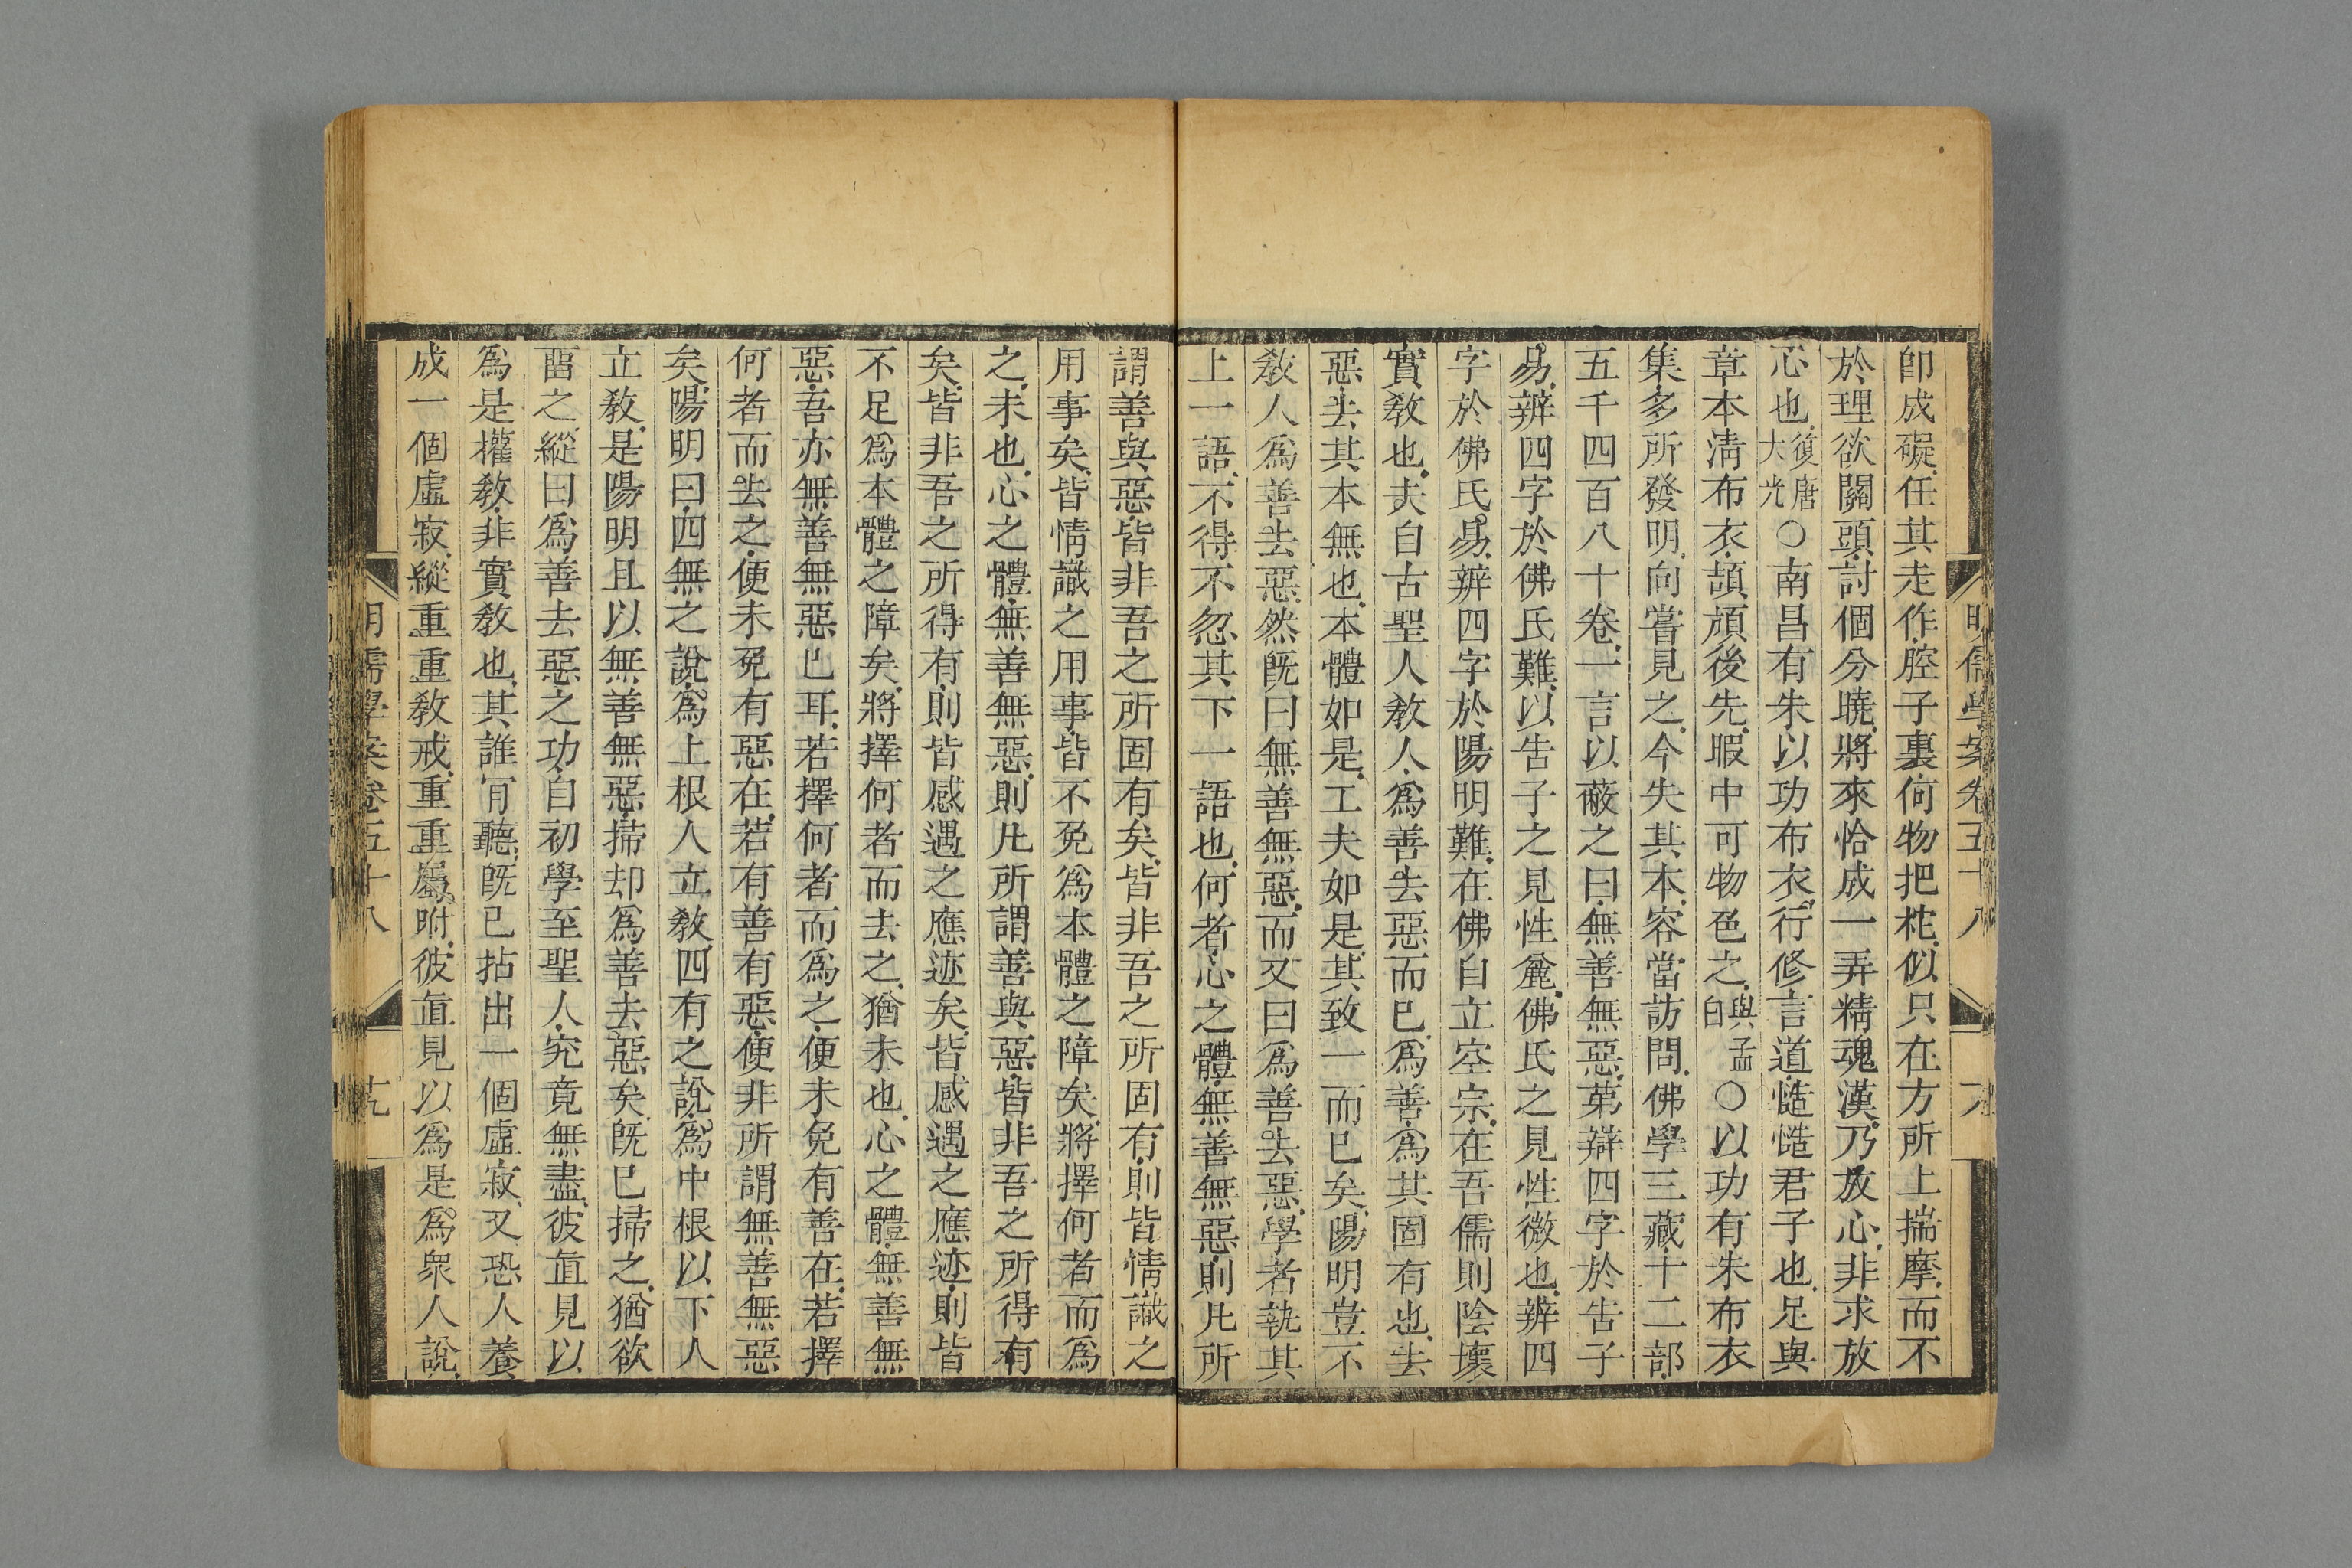 明儒學案卷五十八
卽成礙任其走作腔子裏何物把柁似只在方所上揣摩而不
於理欲關頭討個分曉將來恰成一弄精魂漢乃放心非求放
心也復唐大光○南昌有朱以功布衣行修言道慥慥君子也足與
章本淸布衣頡頏後先暇中可物色之與孟白○以功有朱布衣
集多所發明向嘗見之今失其本容當訪問佛學三藏十二部
五千四百八十卷一言以蔽之曰無善無惡第辯四字於告子
易辨四字於佛氏難以告子之見性麄佛氏之見性微也辨四
字於佛氏易辨四字於陽明難在佛自立空宗在吾儒則陰壞
實敎也夫自古聖人敎人爲善去惡而已爲善爲其固有也去
惡去其本無也本體如是工夫如是其致一而已矣陽明豈不
敎人爲善去惡然旣曰無善無惡而又曰爲善去惡學者執其
上一語不得不忽其下一語也何者心之體無善無惡則凡所
謂善與惡皆非吾之所固有矣皆非吾之所固有則皆情識之
用事矣皆情識之用事皆不免爲本體之障矣將擇何者而爲
之未也心之體無善無惡則凡所謂善與惡皆非吾之所得有
矣皆非吾之所得有則皆感遇之應迹矣皆感遇之應迹則皆
不足爲本體之障矣將擇何者而去之猶未也心之體無善無
惡吾亦無善無惡已耳若擇何者而爲之便未免有善在若擇
何者而去之便未免有惡在若有善有惡便非所謂無善無惡
矣陽明曰四無之說爲上根人立敎四有之說爲中根以下人
立敎是陽明且以無善無惡掃却爲善去惡矣旣已掃之猶欲
畱之縱曰爲善去惡之功自初學至聖人究竟無盡彼直見以
爲是權敎非實敎也其誰肎聽旣已拈出一個虛寂又恐人養
成一個虛寂縱重重敎戒重重屬咐彼直見以爲是爲衆人說
明儒學案卷五十八